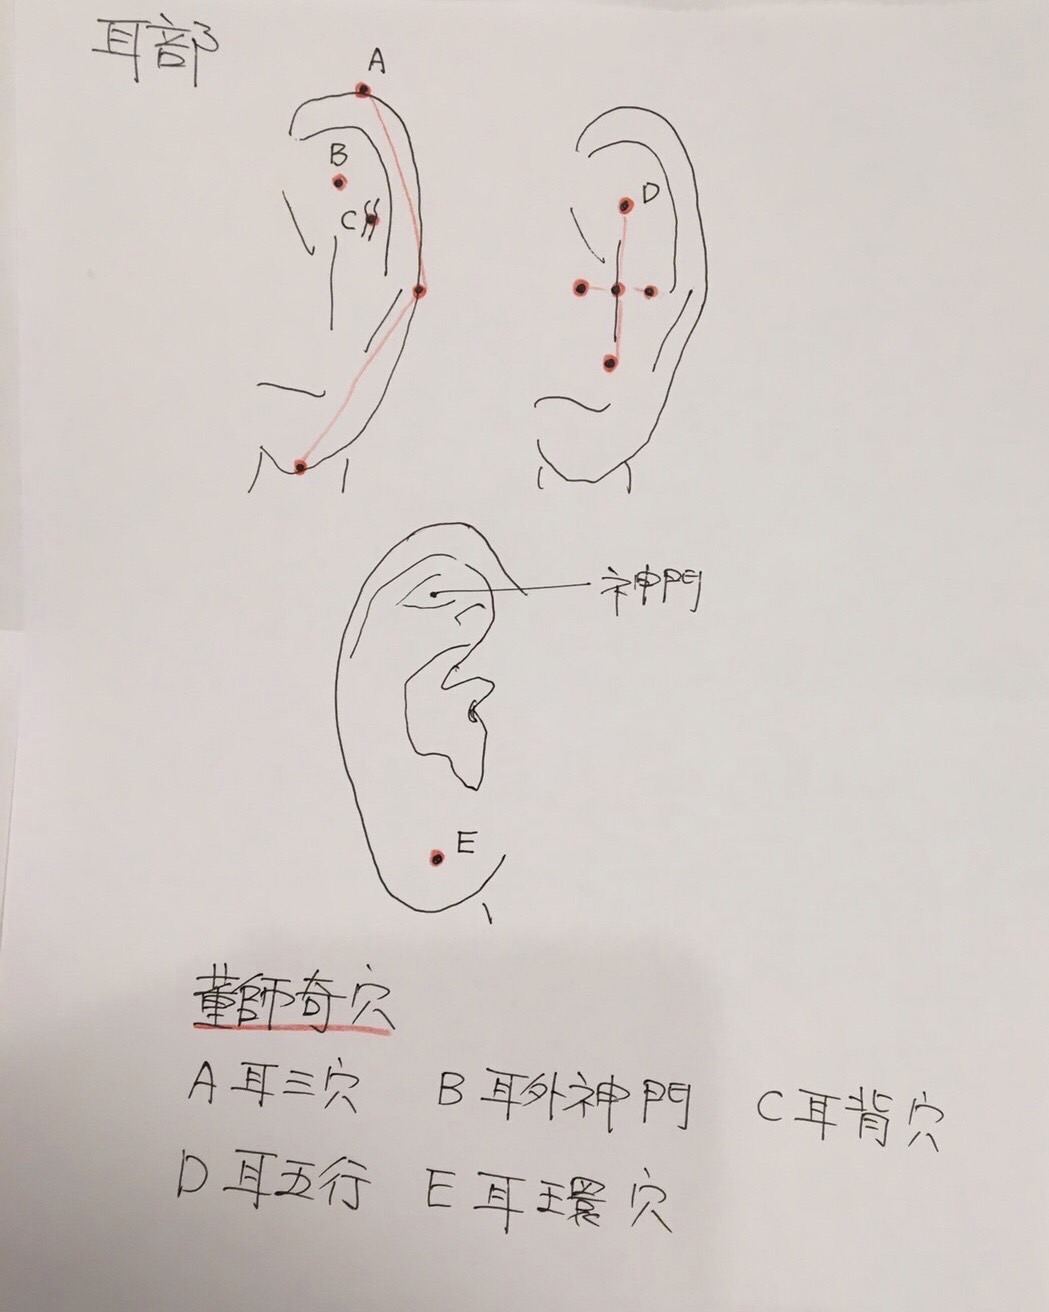 耳部
A
B
C
D
神門
E
董師奇穴
A 耳三穴 B 耳外神門 C 耳背穴
D 耳五行 E 耳環穴